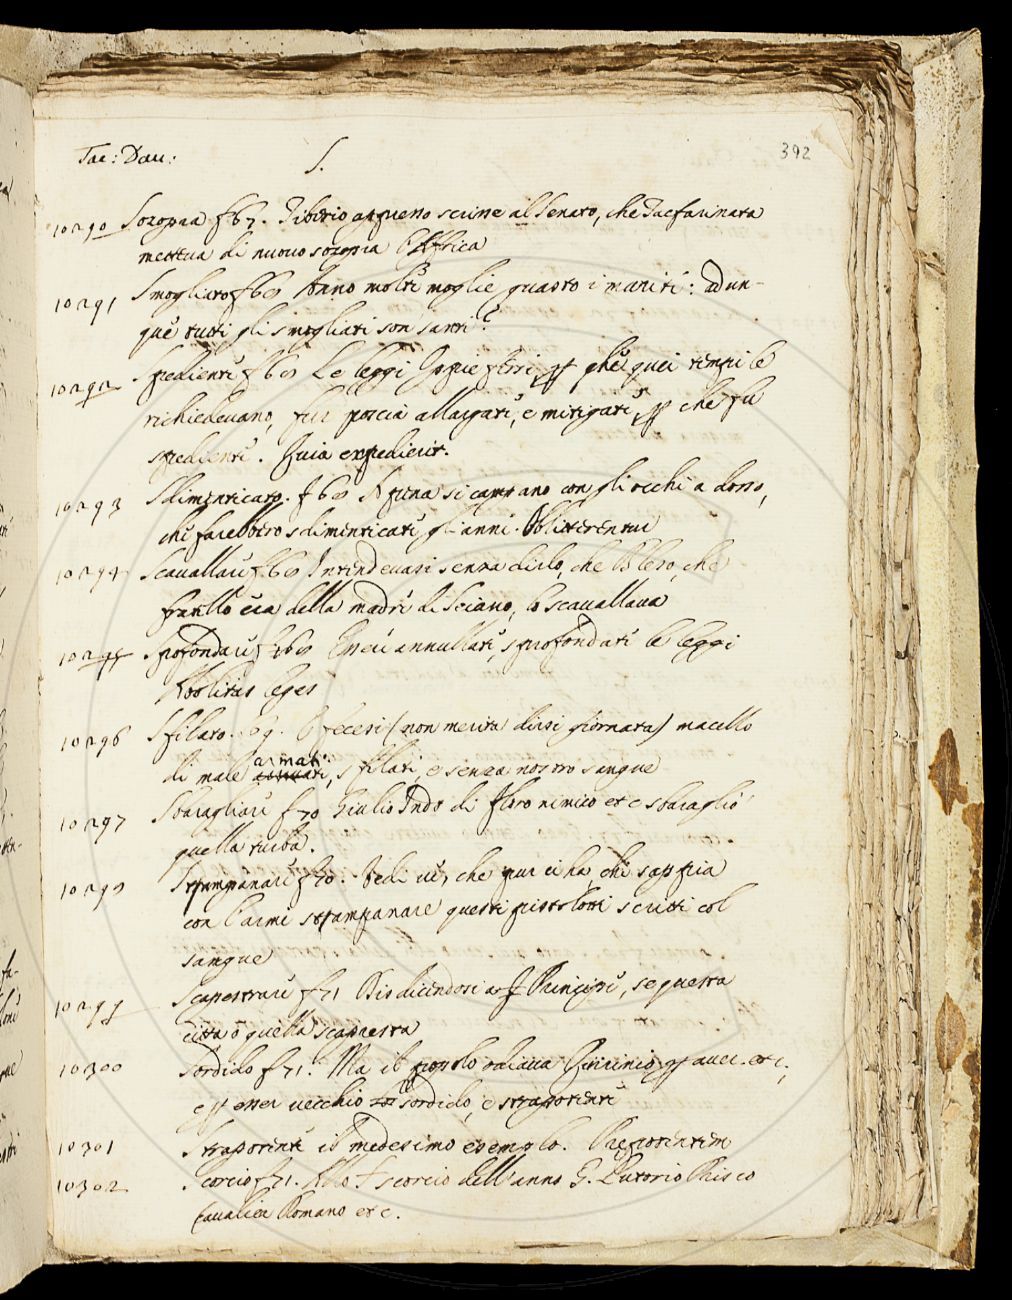 Tac: Dav:
S.
392
10290 Sozopra f 67. Tiberio appresso scrisse al Senato, che Tacfarinata
metteva di nuovo sozopra l'Affrica
10291 Smogliato f 68 Anno molti moglie quanto i mariti: adun-
que tutti gli smogliati son santi?
10292 Spedienti f 68 Le leggi Oppie furo, perche quei tempi le
richiedevano, fur poscia allargati, e mitigati, perche fu
spedienti. Quia expedierit.
10293 Sdimenticato. f 68 A pena si campano con gli occhi a dosso,
chi farebbero sdimenticati gl'anni. Oblitterentur
10294 Scavallari f. 68 Intendevasi senza dirlo, che Bleso, che
fratello era della madre di Seiano, lo scavallava
10295 Sprofondari f 68 Eneu annullati, sprofondati le leggi
Abolitas leges
10296 Sfilato. 69. E fecesi (non merita dirsi giornata) macello
di male armati, sfilati, e senza nostro sangue
10297 Sbaragliari f 70 Giulio Indo di Floro nimico etc sbaragliò
quella turba.
10298 Strampanari f 70. Vedi vi, che pur ci ha chi sappia
con l'armi strampanare questi pistolotti scritti col
sangue
10299 Scapestrari f 71 Disdicendosi a Principi, se questa
città o quella scapestra
10300 Sordido f 71. Ma il popolo odiava Quirinio per aver. etc;
e per esser vecchio sordido, e strapotente
10301 Strapotenti il medesimo esemplo. Praepotentem
10302 Scorcio f 71. Allo scorcio dell'anno G. Lutorio Prisco
Cavalier Romano etc.